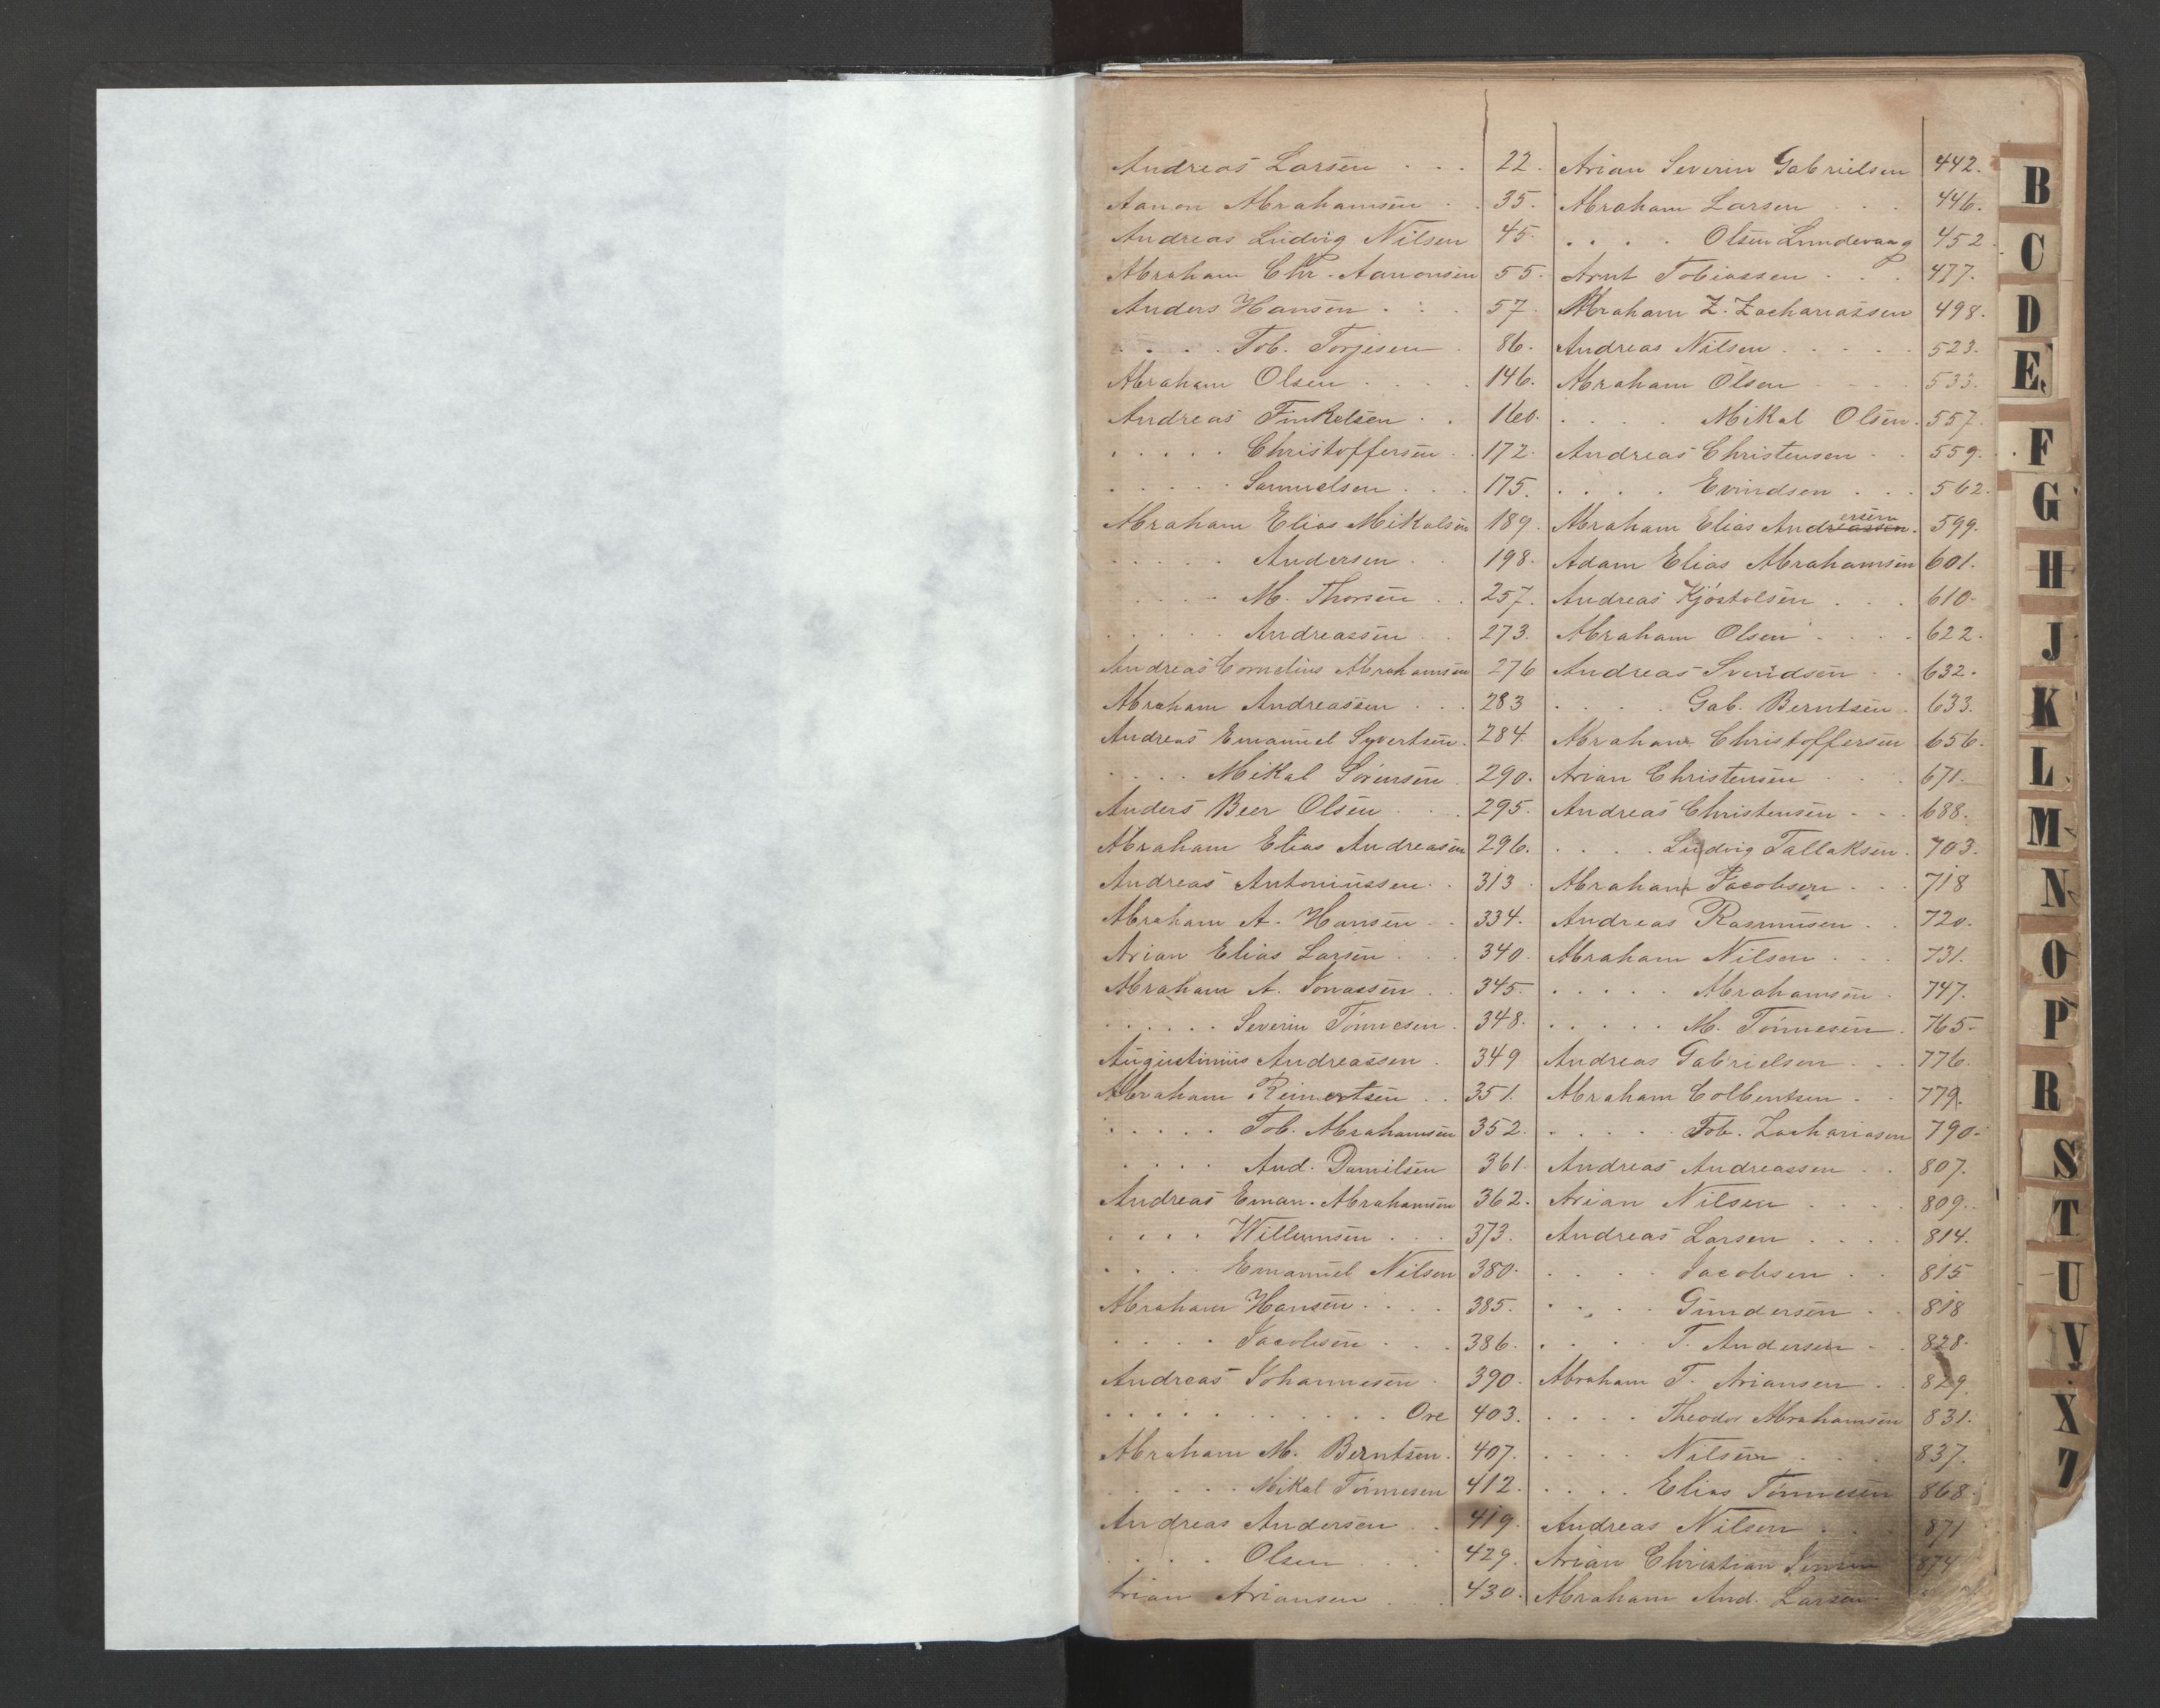 Andreas Larsen . . . 22.
Aanon Abrahamsen . . 35.
Andreas Ludvig Nilsen 45.
Abraham Chr. Aanonsen 55.
Anders Hansen . . . 57.
. . . . Tob. Torjesen . 86.
Abraham Olsen . . . . 146.
Andreas Finkelsen . . 160.
. . . . . Christoffersen . 172.
. . . . . Samuelsen . . . 175.
Abraham Elias Mikalsen 189.
. . . . . Andersen . . 198.
. . . . M. Thorsen . . 257.
. . . . . Andreassen . . 273.
Andreas Cornelius Abrahamsen 276
Abraham Andreassen . . . 283
Andreas Emanuel Syvertsen. 284.
. . . . Mikal Sörensen . 290.
Anders Beer Olsen . . . 295.
Abraham Elias Andreasen 296.
Andreas Antoniussen . . 313.
Abraham A. Hansen . . 334.
Arian Elias Larsen . . . 340.
Abraham A. Jonassen . . 345.
. . . . . Severin Tönnesen . 348.
Augustinius Andreassen . 349
Abraham Reinertsen . . 351.
. . . . . Tob. Abrahamsen 352.
. . . . And. Danilsen 361.
Andreas Eman. Abrahamsen 362.
. . . . Willumsen . . . 373.
. . . . Emanuel Nilsen 380.
Abraham Hansen . . . . 385.
. . . . Jacobsen . . . 386.
Andreas Johannesen . 390.
. . . . . . . . . . Ore 403.
Abraham M. Berntsen . 407.
. . . . . Mikal Tönnesen 412.
Andreas Andersen . . 419.
. . . . Olsen . . . 429.
Arian Ariansen . . . 430.
Arian Severin Gabrielsen 442.
Abraham Larsen . . . 446.
. . . . Olsen Lundevaag 452.
Arnt Tobiassen . . . 477.
Abraham Z. Zachariassen 498.
Andreas Nilsen . . . . . 523.
Abraham Olsen . . . . 533.
. . . . Mikal Olsen . 557.
Andreas Christensen . . 559.
. . . . Evindsen . . . 562.
Abraham Elias Andreassen ersen . 599.
Adam Elias Abrahamsen 601.
Andreas Kjöstolsen . . . 610.
Abraham Olsen . . . . 622.
Andreas Svendsen . . 632.
. . . . Gab. Berntsen . 633.
Abraham Christoffersen 656.
Arian Christensen . . . 671.
Andreas Christensen . . . 688.
. . . . Ludvig Tallaksen . 703.
Abraham Jacobsen . . . 718
Andreas Rasmusen . . 720.
Abraham Nilsen . . . 731.
. . . . . Abrahamsen . 747.
. . . . . M. Tönnesen . 765.
Andreas Gabrielsen . . . 776.
Abraham Colbentsen . . 779.
. . . . . Tob. Zachariasen 790.
Andreas Andreassen . . 807.
Arian Nilsen . . . . 809.
Andreas Larsen . . . . 814.
. . . . Jacobsen . . 815
. . . . Gundersen . . 818
. . . . T. Andersen . . 828.
Abraham T. Ariansen . . 829.
. . . . Theodor Abrahamsen 831.
. . . . Nilsen . . . 837.
. . . . Elias Tönnesen 868.
Andreas Nilsen . . . 871
Arian Christian Jensen 874
Abraham And. Larsen
B
C
D
E
F
G
H
J
K
L
M
N
O
P
R
S
T
U
V
X
Z